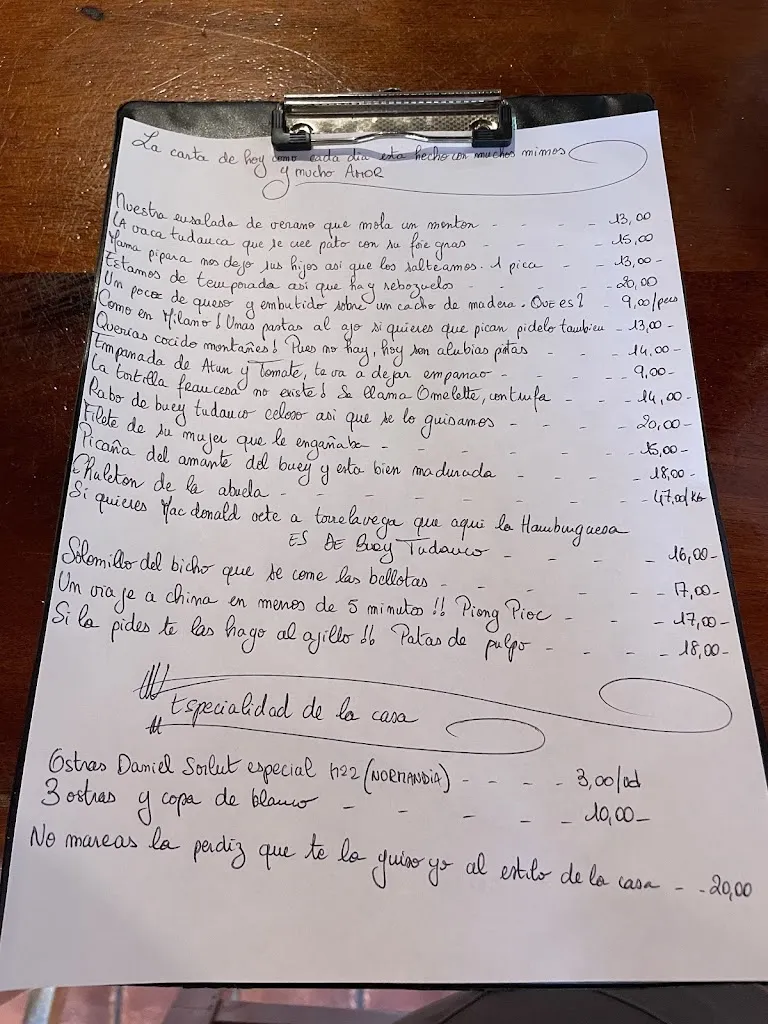 La carta de hoy como cada dia esta hecho con muchos mimos
y mucho AMOR
Nuestra ensalada de verano que mola un monton - - - 13,00
LA vaca tudanca que se cree pato con su foie gras - - - 15,00
Mama pipara nos dejo sus hijos asi que los salteamos. 1 pica - - 13,00-
Estamos de temporada asi que hay rebozuelos - - - 20,00
Un poco de queso y embutido sobre un cacho de madera. QUE ES? - 9,00/pers
Como en Milano! Unas pastas al ajo si quieres que pican pidelo tambien - 13,00-
Querias cocido montañes! Pues no hay, hoy son alubias pintas - - 14,00-
Empanada de Atun y Tomate, te va a dejar empanao - - - 9,00-
La tortilla francesa no existe! Se llama Omelette, con trufa - - 14,00-
Rabo de buey tudanco celoso asi que se lo guisamos - - - 20,00-
Filete de su mujer que le engañaba - - - - - - 15,00-
Picaña del amante del buey y esta bien madurada - - - 18,00-
Chuleton de la abuela - - - - - - - - 47,00/KG
Si quieres Mac donald vete a torrelavega que aqui la Hamburguesa
ES DE Buey Tudanco - - - - 16,00-
Solomillo del bicho que se come las bellotas - - - - - 17,00-
Un viaje a china en menos de 5 minutos !! Piong Pioc - - - 17,00-
Si la pides te las hago al ajillo !! Patas de pulpo - - - - 18,00-
Especialidad de la casa
Ostras Daniel Sorlut especial n22 (NORMANDIA) - - - - 3,00/ud
3 ostras y copa de blanco - - - - - 10,00-
No mareas la perdiz que te la guiso yo al estilo de la casa - - 20,00